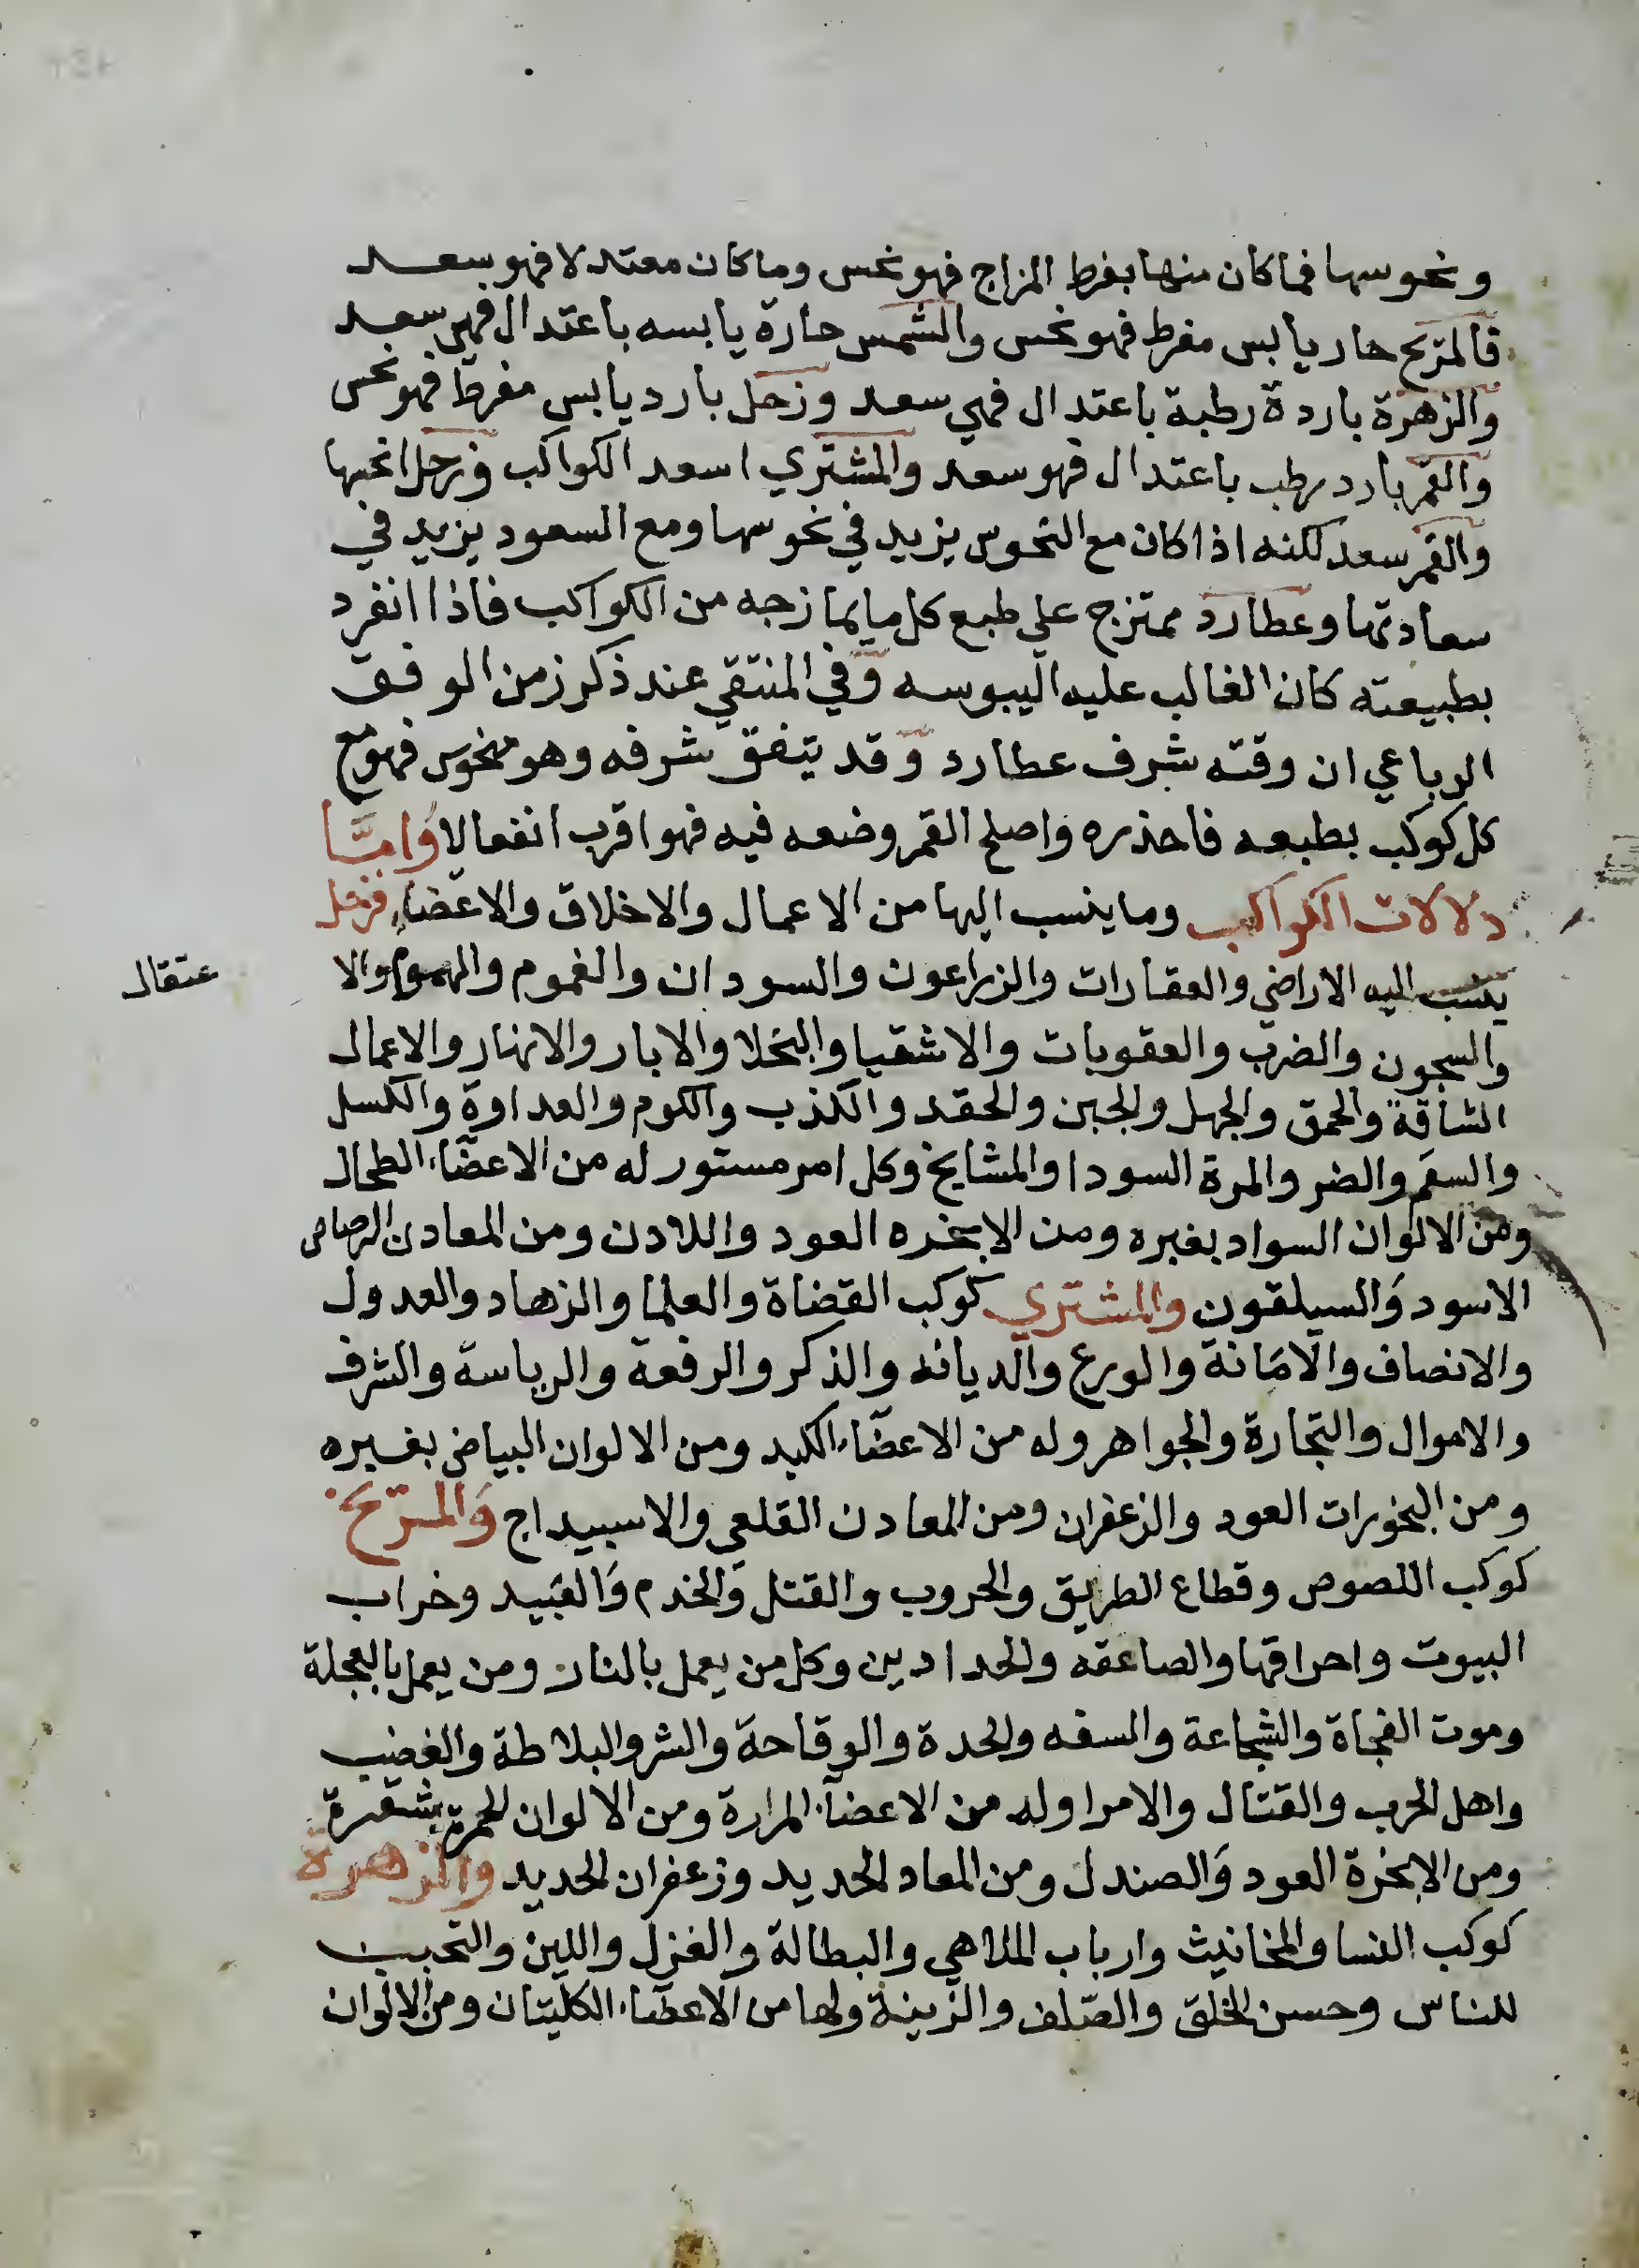 ونحوسها فما كان منها بفرط المزاج فهو نحس وما كان معتدلا فهو سعد
فالمريخ حار يابس مفرط فهو نحس والشمس حارة يابسه باعتدال فهي سعد
والزهرة باردة رطبة باعتدال فهي سعد وزحل بارد يابس مفرط فهو نحس
والقمر بارد رطب باعتدال فهو سعد والمشتري اسعد الكواكب وزحل انحسها
والقمر سعد لكنه اذا كان مع النحوس يزيد في نحوسها ومع السعود يزيد في
سعادتها وعطارد ممتزج علي طبع كل ما يمازجه من الكواكب فاذا انفرد
بطبيعته كان الغالب عليه اليبوسه وفي المنتقي عند ذكر زمن الوفق
الرباعي ان وقته شرف عطارد وقد يتفق شرفه وهو منحوس فهو مع
كل كوكب بطبعه فاحذره واصلح القمر وضعه فيه فهو اقرب انفعالا واما
دلالات الكواكب وما ينسب اليها من الاعمال والاخلاق والاعضاء فزحل
ينسب اليه الاراضي والعقارات والزراعون والسودان والغموم والهموم والا
عتقال
والسجون والضرب والعقوبات والاشقيا والبخلا والابار والانهار والاعمال
الشاقة والحمق والجهل والجبن والحقد والكذب واللوم والعداوة والكسل
والسقم والضر والمرة السودا والمشايخ وكل امر مستور له من الاعضاء الطحال
ومن الالوان السواد بغبره ومن الابخره العود واللادن ومن المعادن الرصاص
الاسود والسيلقون والمشتري كوكب القضاة والعلما والزهاد والعدول
والانصاف والامانة والورع والديانه والذكر والرفعة والرياسة والشرف
والاموال والتجارة والجواهر وله من الاعضاء الكبد ومن الالوان البياض بغبره
ومن البخورات العود والزعفران ومن المعادن القلعي والاسبيداج والمريخ
كوكب اللصوص وقطاع الطريق والحروب والقتل والخدم والعبيد وخراب
البيوت واحراقها والصاعقه والحدادين وكل من يعمل بالنار ومن يعمل بالعجلة
وموت الفجاة والشجاعة والسفه والحدة والوقاحة والشر والبلاطة والغضب
واهل الحرب والقتال والامرا وله من الاعضآء المرارة ومن الالوان الحمرة بشقرة
ومن الابخرة العود والصندل ومن المعاد الحديد وزعفران الحديد والزهرة
كوكب النسا والمخانيث وارباب الملاهي والبطالة والغزل واللين والتحبب
للناس وحسن الخلق والصلف والزينة ولها من الاعضاء الكليتان ومن الالوان